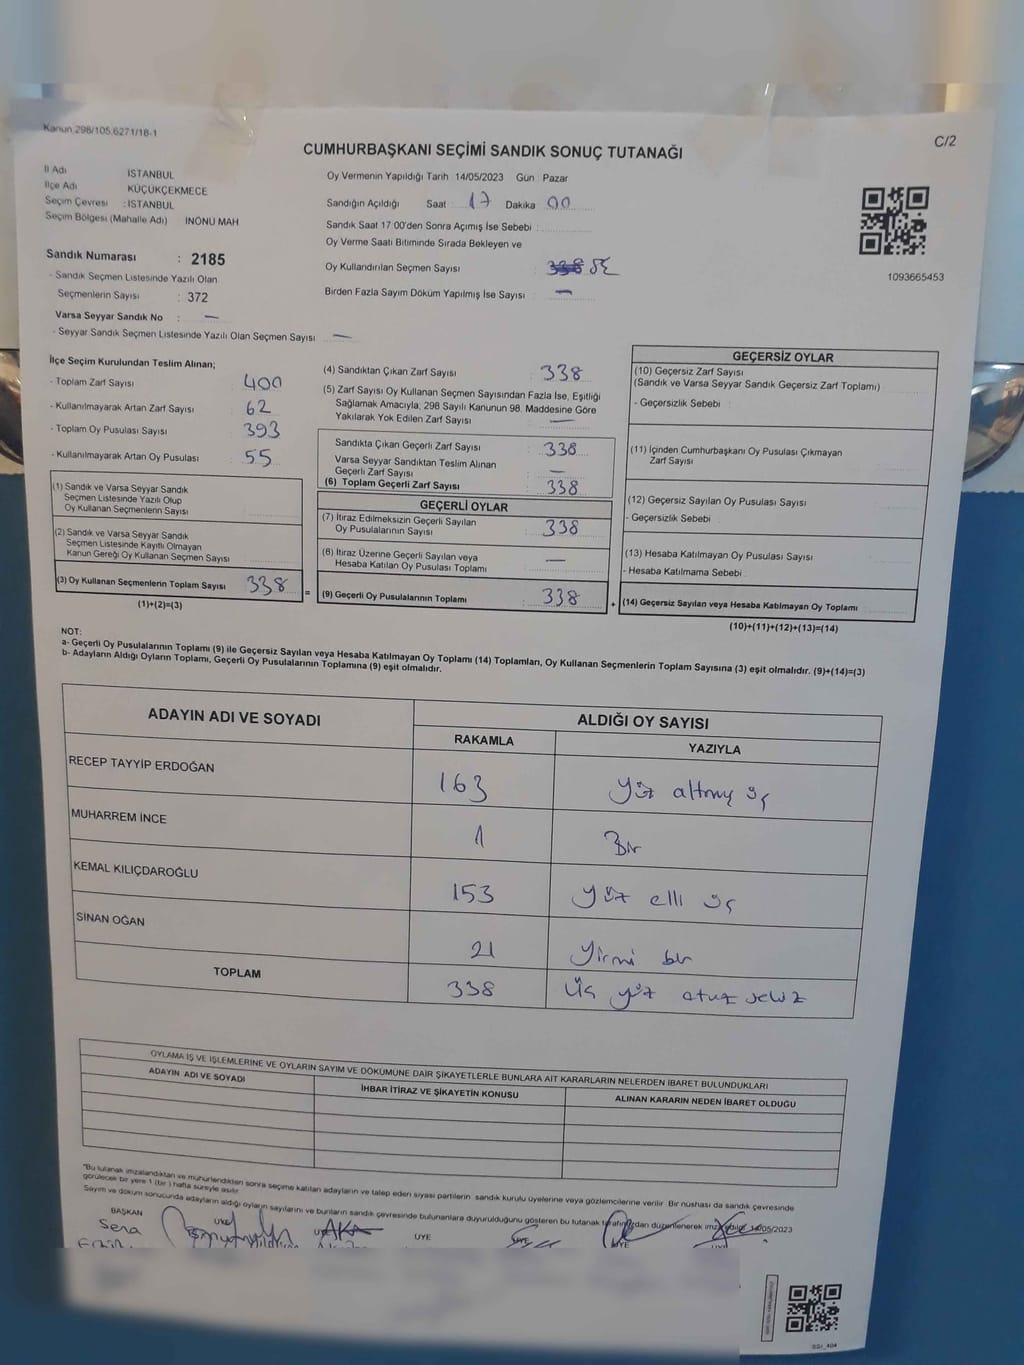 Kanun 298/105,6271/18-1
C/2
CUMHURBAŞKANI SEÇİMİ SANDIK SONUÇ TUTANAĞI
İl Adı İSTANBUL
İlçe Adı KÜÇÜKÇEKMECE
Seçim Çevresi : İSTANBUL
Seçim Bölgesi (Mahalle Adı) İNÖNÜ MAH
Sandık Numarası : 2185
- Sandık Seçmen Listesinde Yazılı Olan
Seçmenlerin Sayısı : 372
Varsa Seyyar Sandık No : —
- Seyyar Sandık Seçmen Listesinde Yazılı Olan Seçmen Sayısı : —
Oy Vermenin Yapıldığı Tarih 14/05/2023 Gün Pazar
Sandığın Açıldığı Saat : 17 Dakika 00
Sandık Saat 17:00'den Sonra Açılmış İse Sebebi :
Oy Verme Saati Bitiminde Sırada Bekleyen ve
Oy Kullandırılan Seçmen Sayısı : 338
Birden Fazla Sayım Döküm Yapılmış İse Sayısı : —
1093665453
İlçe Seçim Kurulundan Teslim Alınan;
- Toplam Zarf Sayısı : 400
- Kullanılmayarak Artan Zarf Sayısı : 62
- Toplam Oy Pusulası Sayısı : 393
- Kullanılmayarak Artan Oy Pusulası : 55
(1) Sandık ve Varsa Seyyar Sandık
Seçmen Listesinde Yazılı Olup
Oy Kullanan Seçmenlerin Sayısı
(2) Sandık ve Varsa Seyyar Sandık
Seçmen Listesinde Kayıtlı Olmayan
Kanun Gereği Oy Kullanan Seçmen Sayısı
(3) Oy Kullanan Seçmenlerin Toplam Sayısı 338
(1)+(2)=(3)
=
(4) Sandıktan Çıkan Zarf Sayısı : 338
(5) Zarf Sayısı Oy Kullanan Seçmen Sayısından Fazla İse, Eşitliği
Sağlamak Amacıyla, 298 Sayılı Kanunun 98. Maddesine Göre
Yakılarak Yok Edilen Zarf Sayısı : —
Sandıkta Çıkan Geçerli Zarf Sayısı : 338
Varsa Seyyar Sandıktan Teslim Alınan
Geçerli Zarf Sayısı : —
(6) Toplam Geçerli Zarf Sayısı : 338
GEÇERLİ OYLAR
(7) İtiraz Edilmeksizin Geçerli Sayılan
Oy Pusulalarının Sayısı : 338
(8) İtiraz Üzerine Geçerli Sayılan veya
Hesaba Katılan Oy Pusulası Toplamı : —
(9) Geçerli Oy Pusulalarının Toplamı : 338
+
GEÇERSİZ OYLAR
(10) Geçersiz Zarf Sayısı
(Sandık ve Varsa Seyyar Sandık Geçersiz Zarf Toplamı)
- Geçersizlik Sebebi :
(11) İçinden Cumhurbaşkanı Oy Pusulası Çıkmayan
Zarf Sayısı
(12) Geçersiz Sayılan Oy Pusulası Sayısı
- Geçersizlik Sebebi :
(13) Hesaba Katılmayan Oy Pusulası Sayısı
- Hesaba Katılmama Sebebi :
(14) Geçersiz Sayılan veya Hesaba Katılmayan Oy Toplamı
(10)+(11)+(12)+(13)=(14)
NOT:
a- Geçerli Oy Pusulalarının Toplamı (9) ile Geçersiz Sayılan veya Hesaba Katılmayan Oy Toplamı (14) Toplamları, Oy Kullanan Seçmenlerin Toplam Sayısına (3) eşit olmalıdır. (9)+(14)=(3)
b- Adayların Aldığı Oyların Toplamı, Geçerli Oy Pusulalarının Toplamına (9) eşit olmalıdır.
ADAYIN ADI VE SOYADI ALDIĞI OY SAYISI
RAKAMLA YAZIYLA
RECEP TAYYİP ERDOĞAN 163 yüz altmış üç
MUHARREM İNCE 1 Bir
KEMAL KILIÇDAROĞLU 153 yüz elli üç
SİNAN OĞAN 21 yirmi bir
TOPLAM 338 üç yüz otuz sekiz
OYLAMA İŞ VE İŞLEMLERİNE VE OYLARIN SAYIM VE DÖKÜMÜNE DAİR ŞİKAYETLERLE BUNLARA AİT KARARLARIN NELERDEN İBARET BULUNDUKLARI
ADAYIN ADI VE SOYADI İHBAR İTİRAZ VE ŞİKAYETİN KONUSU ALINAN KARARIN NEDEN İBARET OLDUĞU
"Bu tutanak imzalandıktan ve mühürlendikten sonra seçime katılan adayların ve talep eden siyasi partilerin sandık kurulu üyelerine veya gözlemcilerine verilir. Bir nüshası da sandık çevresinde
görülecek bir yere 1 (bir) hafta süreyle asılır.
Sayım ve döküm sonucunda adayların aldığı oyların sayılarını ve bunların sandık çevresinde bulunanlara duyurulduğunu gösteren bu tutanak tarafımızdan düzenlenerek imzalanmıştır. 14/05/2023
BAŞKAN ÜYE ÜYE ÜYE ÜYE ÜYE
Sera